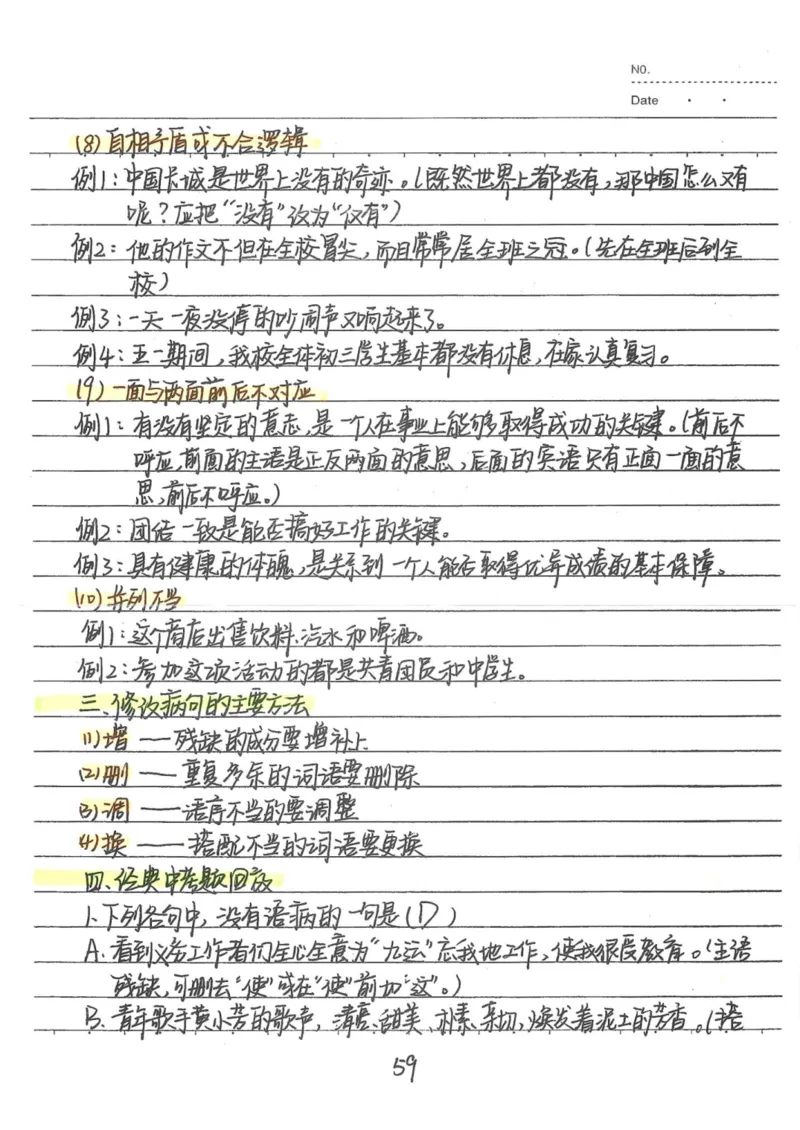 NO.
Date
(8)自相矛盾或不合逻辑
例1:中国长城是世界上没有的奇迹。(既然世界上都没有,那中国怎么又有
呢?应把“没有”改为“仅有”)
例2:他的作文不但在全校冒尖,而且常常居全班之冠。(先在全班后到全
校)
例3:一天一夜没停的吵闹声又响起来了。
例4:五一期间,我校全体初三学生基本都没有休息,在家认真复习。
(9)一面与两面前后不对应
例1:有没有坚定的意志,是一个人在事业上能够取得成功的关键。(前后不
呼应,前面的主语是正反两面的意思,后面的宾语只有正面一面的意
思,前后不呼应。)
例2:团结一致是能否搞好工作的关键。
例3:具有健康的体魄,是关系到一个人能否取得优异成绩的基本保障。
(10)并列不当
例1:这个商店出售饮料、汽水和啤酒。
例2:参加这项活动的都是共青团员和中学生。
三、修改病句的主要方法
(1)增——残缺的成分要增补上
(2)删——重复多余的词语要删除
(3)调——语序不当的要调整
(4)换——搭配不当的词语要更换
四、经典中考题回放
1、下列各句中,没有语病的一句是(D)
A、看到义务工作者们全心全意为“九运”忘我地工作,使我很受教育。(主语
残缺,可删去“使”或在“使”前加“这”。)
B、青年歌手黄小芳的歌声,清亮、甜美、朴素、亲切,焕发着泥土的芳香。(搭
59